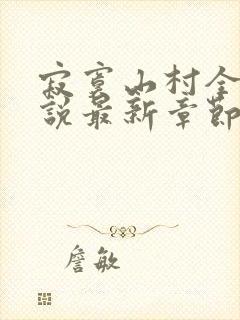 寂寞山村全
說最新章節
詹敏